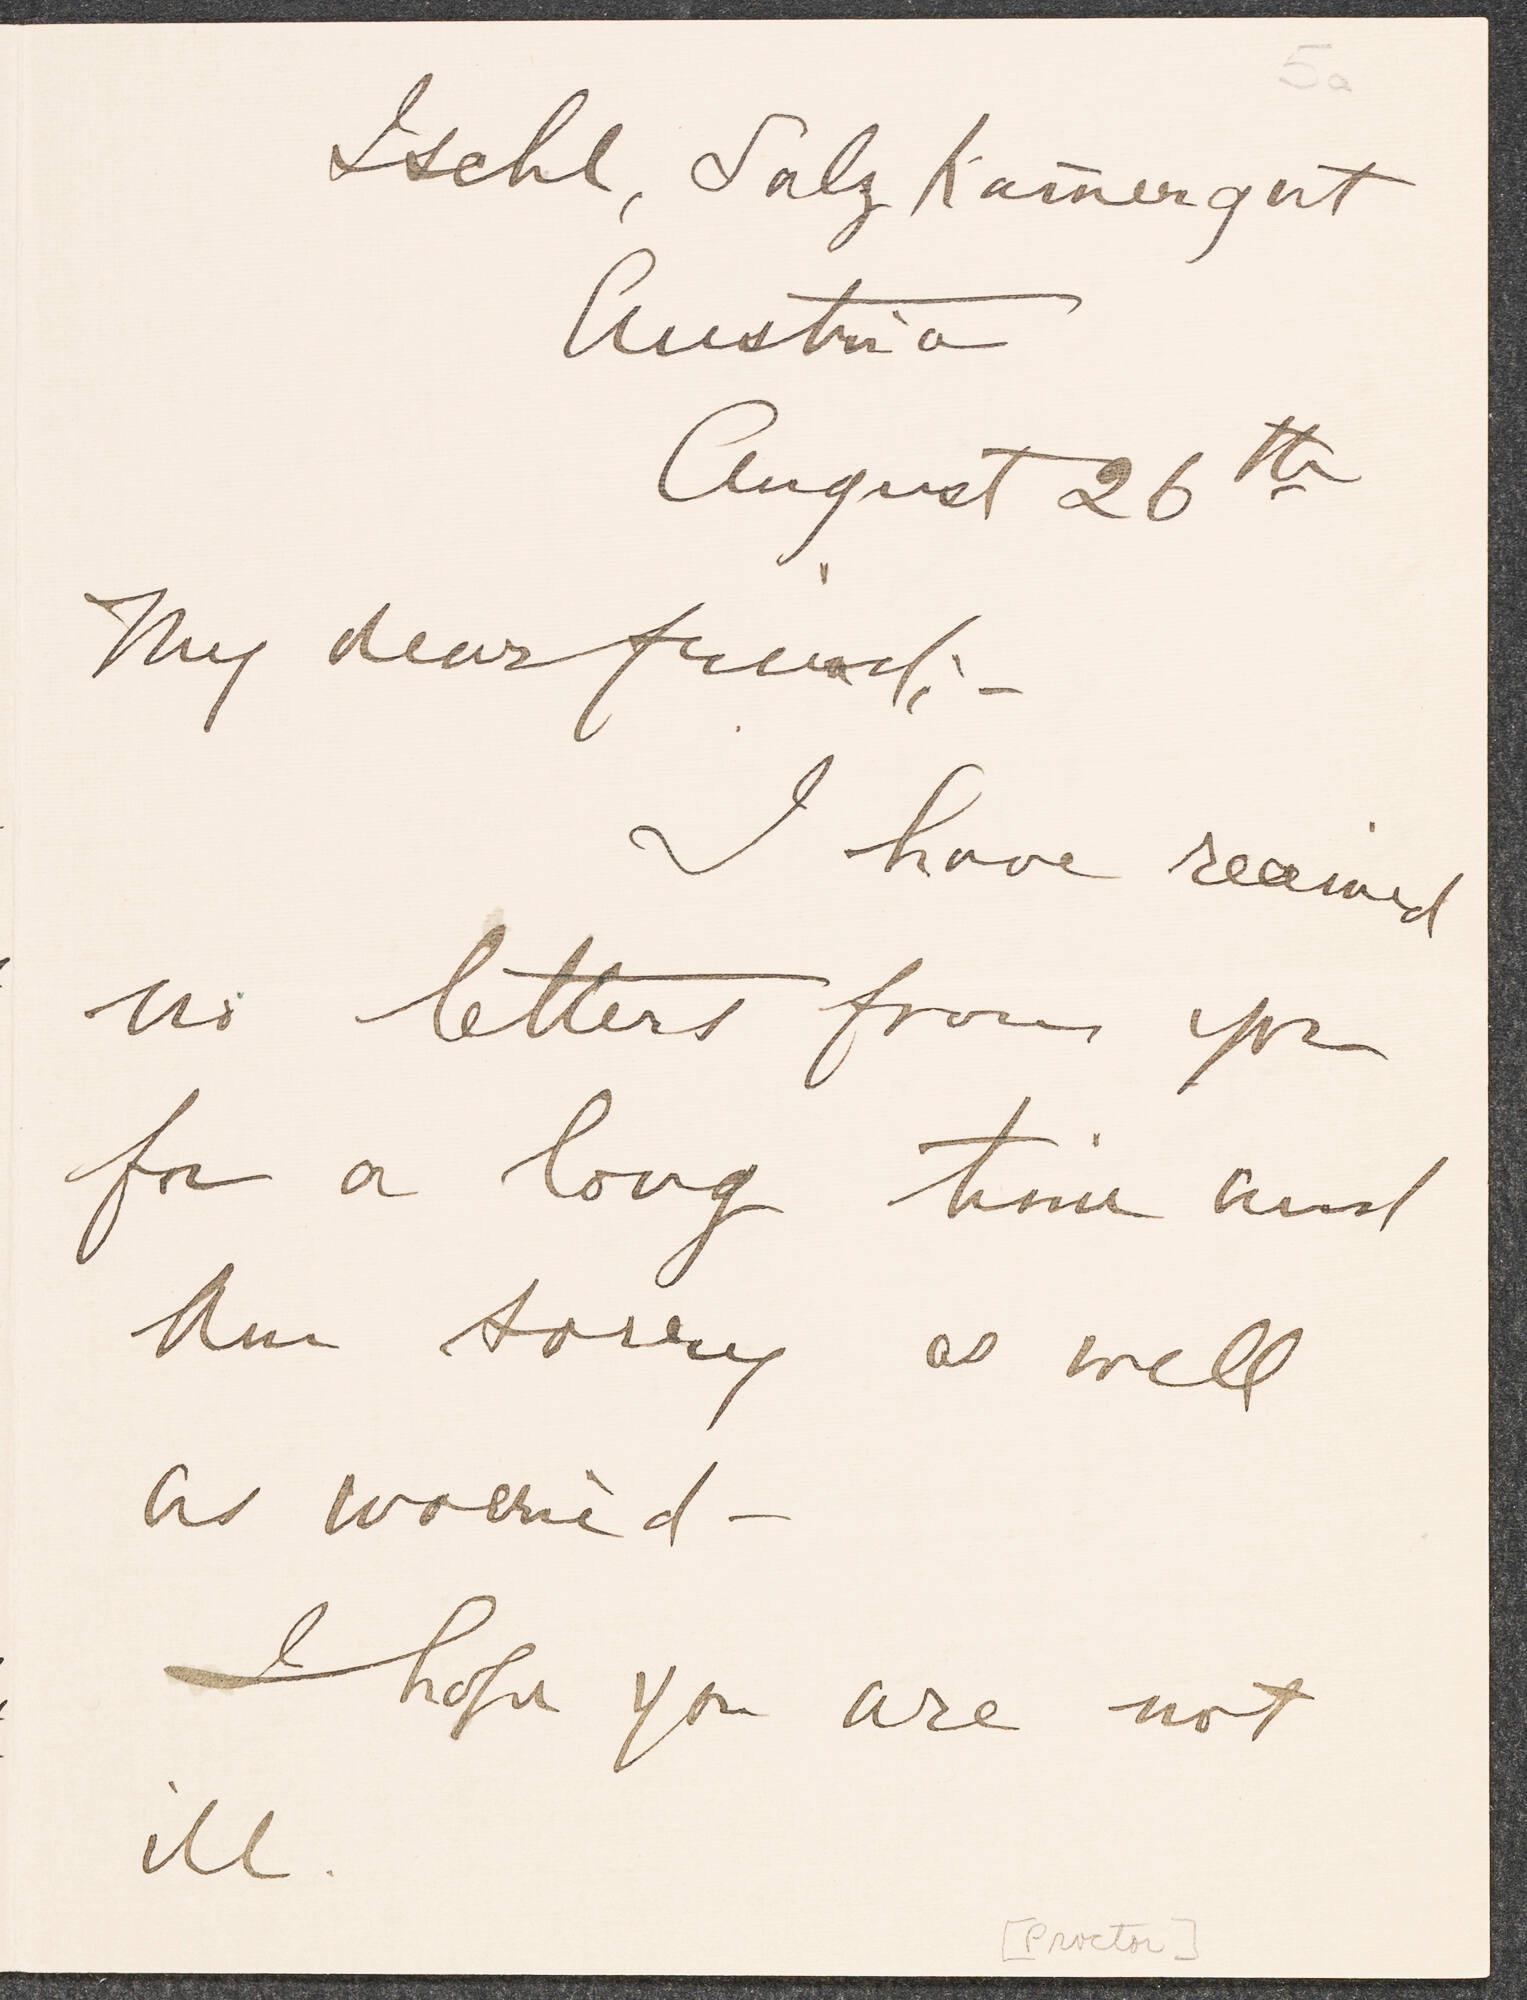 5a
Ischl, Salz Kam̄ergut
Austria
August 26th
My dear friend;-
I have received
no letters from you
for a long time and
am sorry as well
as worried -
I hope you are not
ill.
[Proctor]